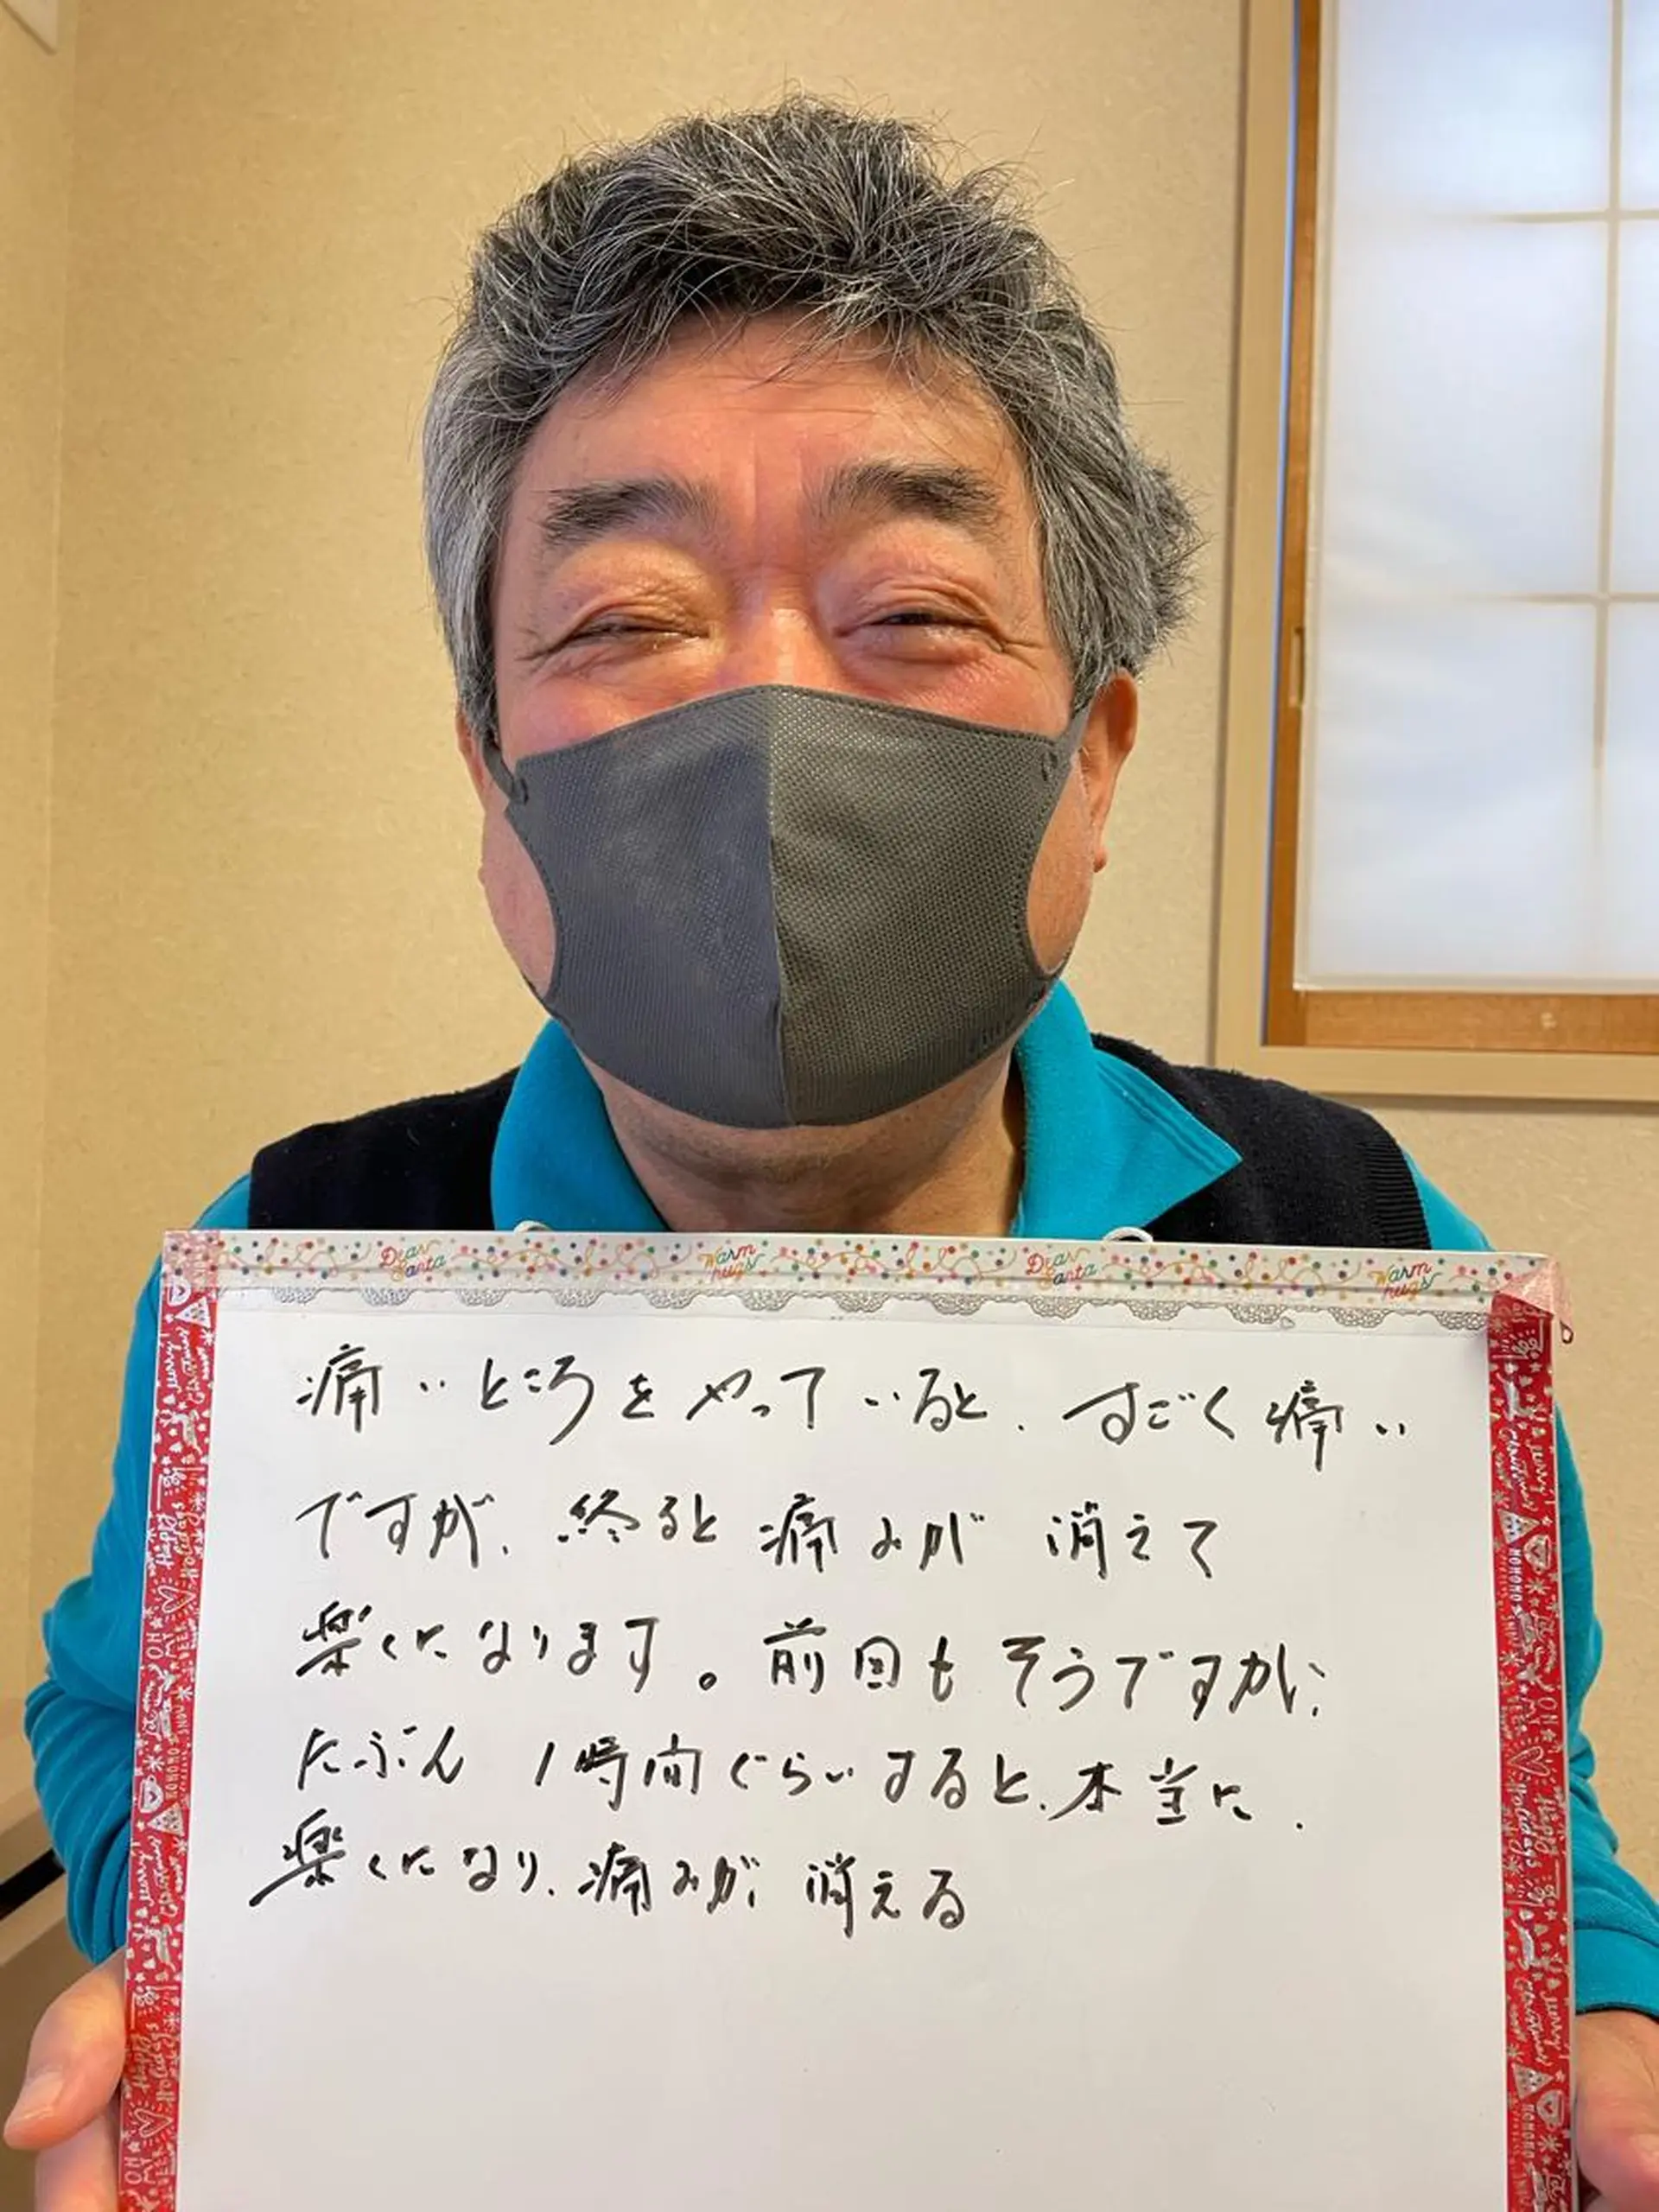 Dear Santa Warm hugs Dear Santa Warm hugs
痛いところをやっていると、すごく痛い
ですが、終ると痛みが消えて
楽くになります。前回もそうですが、
たぶん1時間ぐらいすると、本当に、
楽くになり、痛みが消える